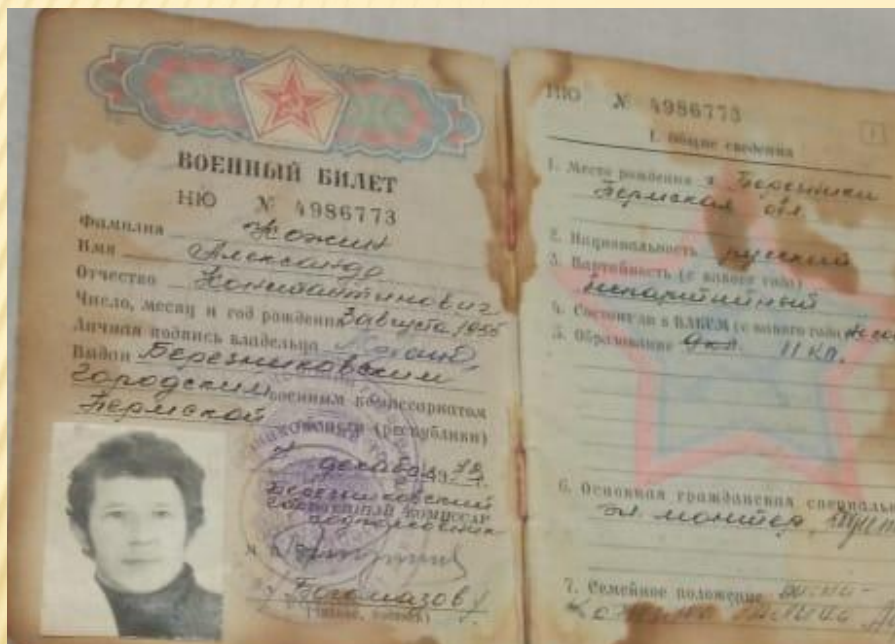 ВОЕННЫЙ БИЛЕТ
НЮ № 4986773
Фамилия Кожин
Имя Александр
Отчество Константинович
Число, месяц и год рождения 3 августа 1955
Личная подпись владельца
Выдан Березниковским
городским военным комиссариатом
Пермской (республики)
декабря 19
Березниковский
ВОЕННЫЙ КОМИССАР
подполковник
Богомазов
НЮ № 4986773
1
I. Общие сведения
1. Место рождения г. Березники
Пермская обл.
2. Национальность русский
3. Партийность (с какого года)
беспартийный
4. Состоит ли в ВЛКСМ (с какого года)
5. Образование 11 кл.
6. Основная гражданская специаль
эл. монтер
7. Семейное положение жена-
Кожина